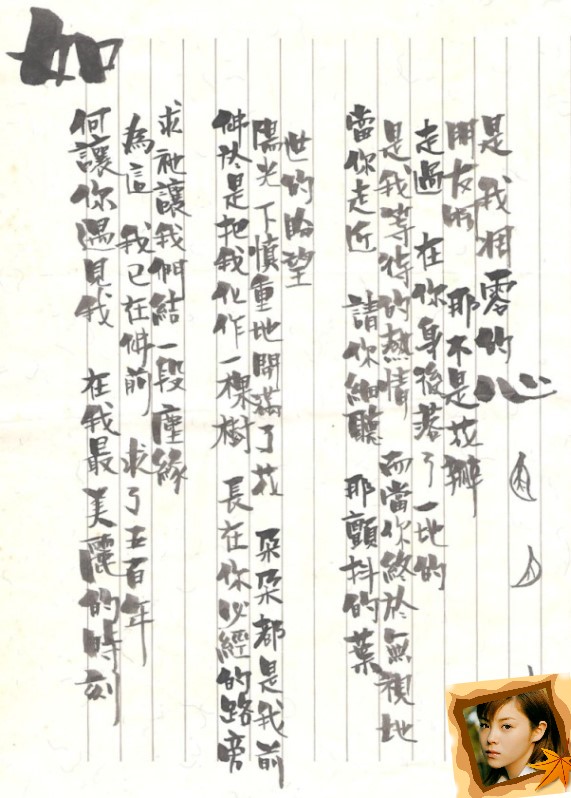 如
何讓你遇見我 在我最美麗的時刻
為這 我已在佛前 求了五百年
求祂讓我們結一段塵緣
佛於是把我化作一棵樹 長在你必經的路旁
陽光下慎重地開滿了花 朵朵都是我前
世的盼望
當你走近 請你細聽 那顫抖的葉
是我等待的熱情 而當你終於無視地
走過 在你身後落了一地的
朋友啊 那不是花瓣
是我凋零的心